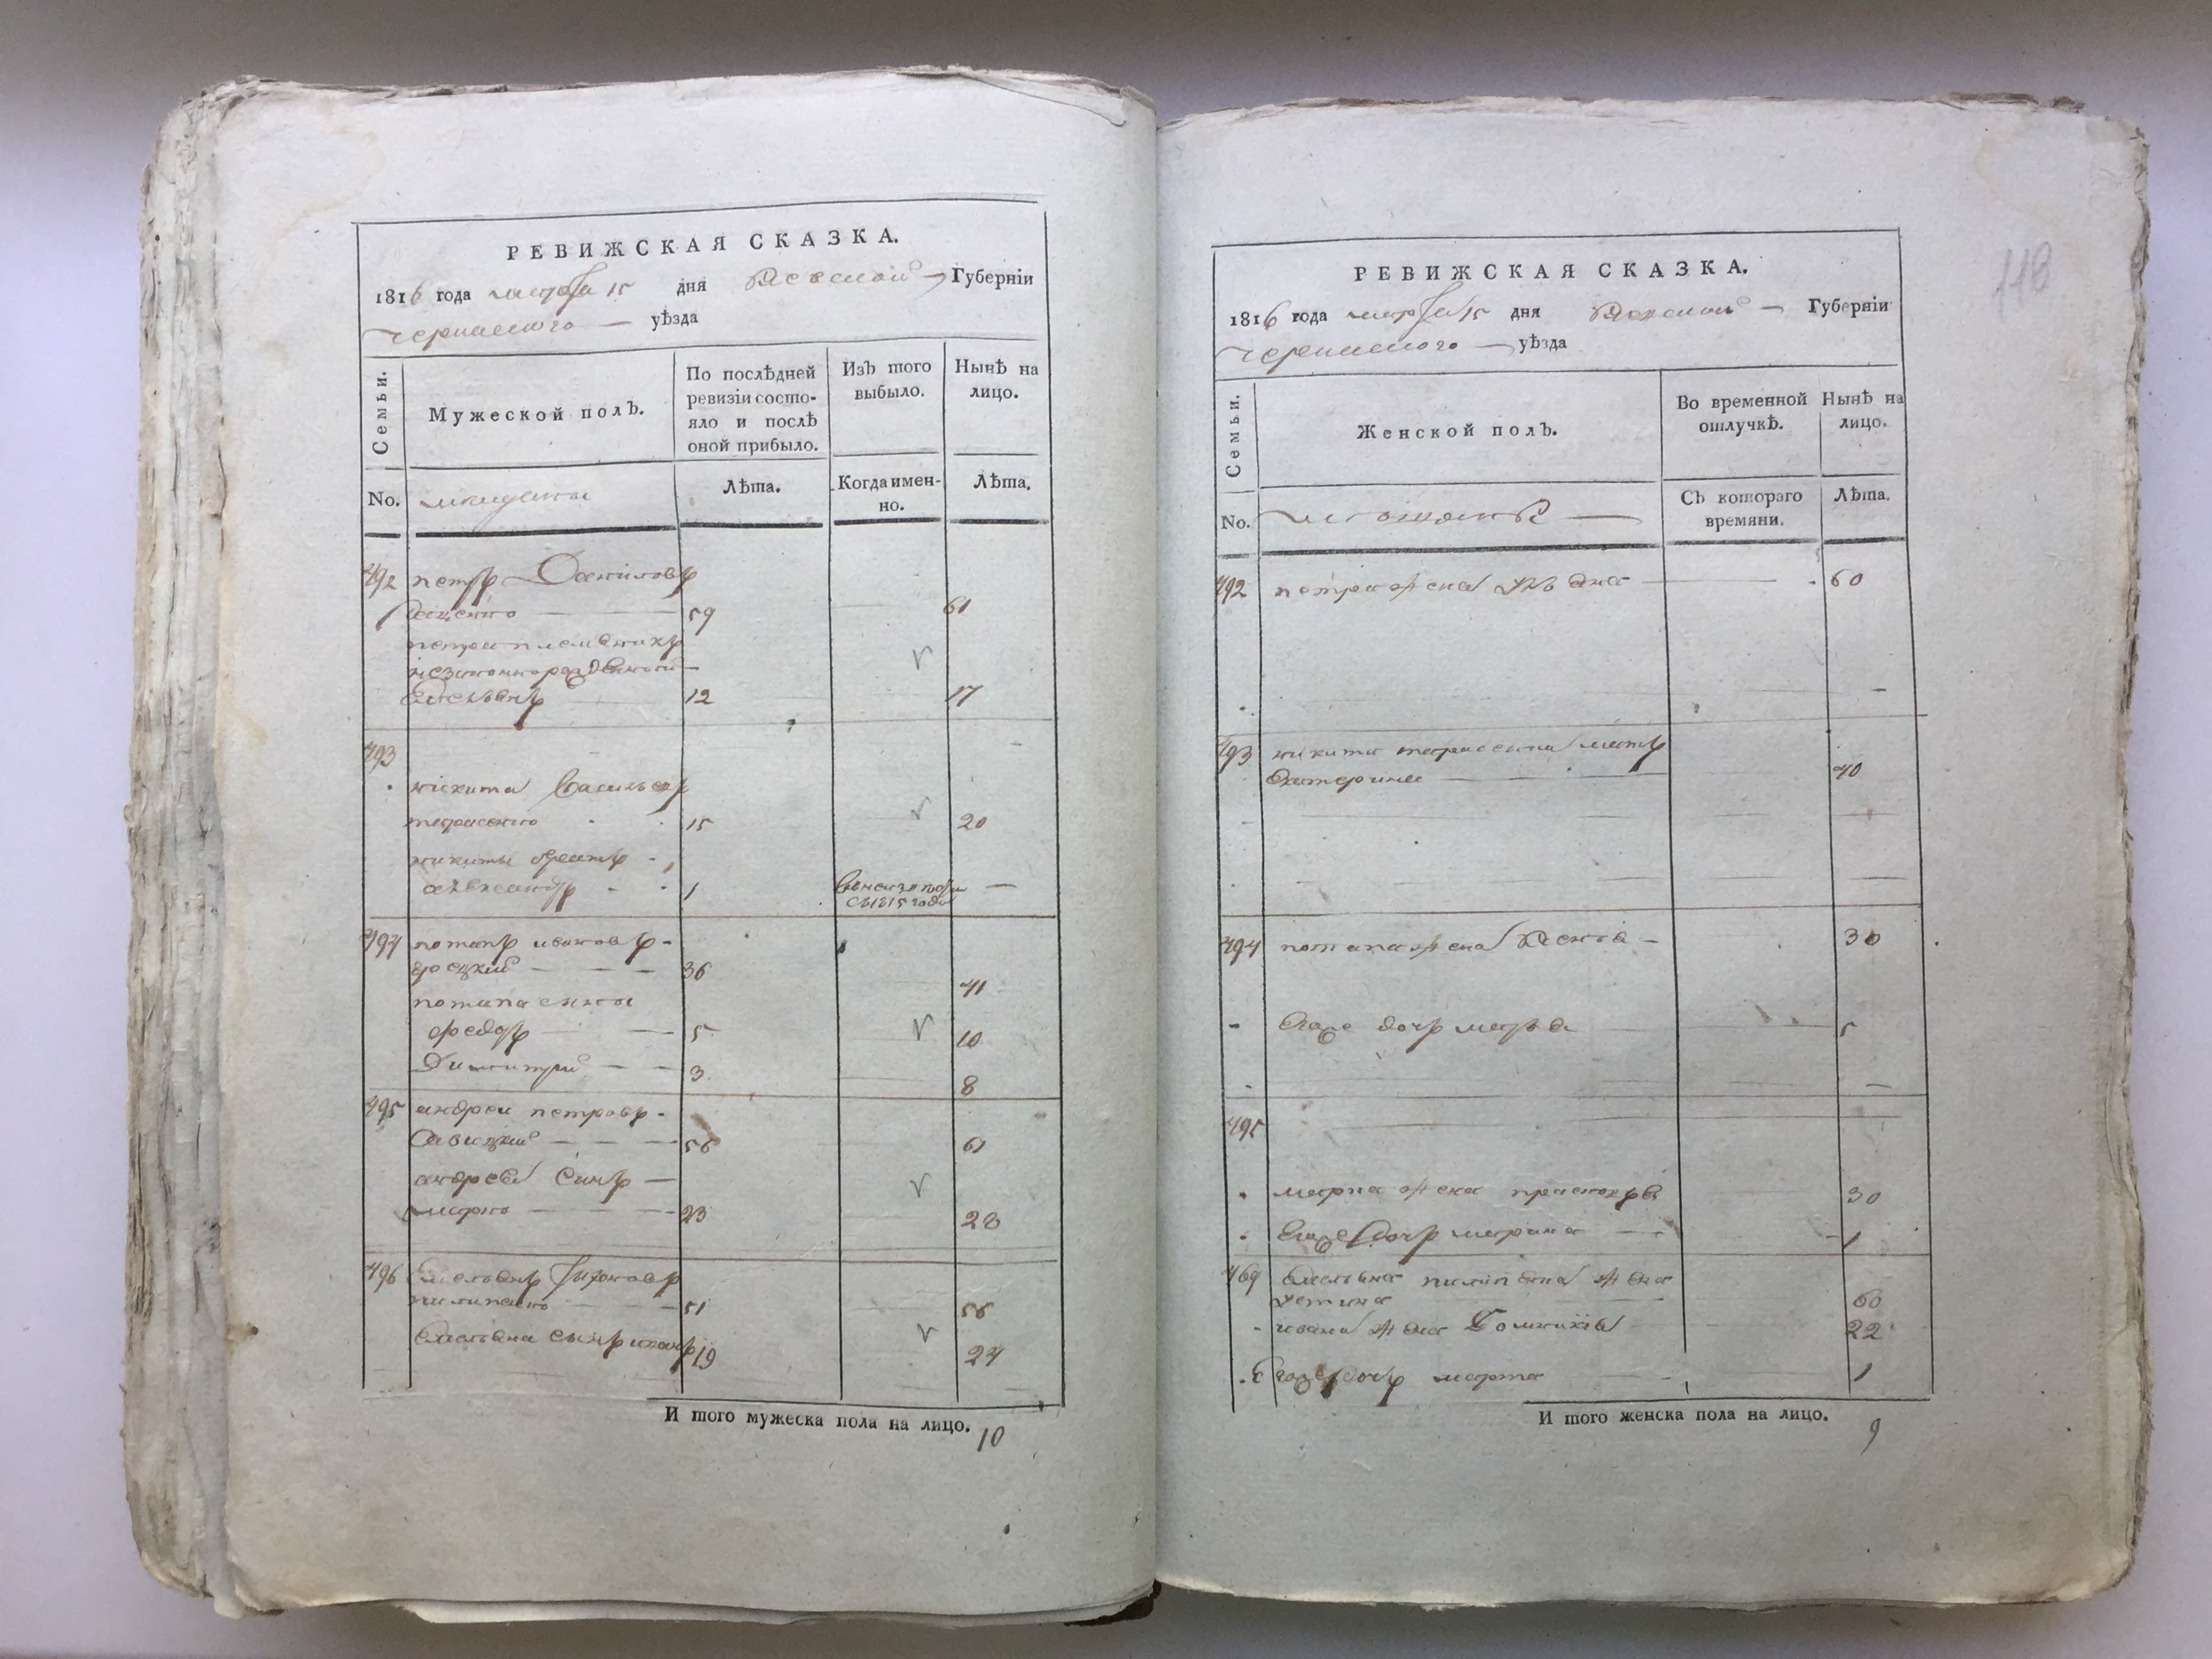 РЕВИЖСКАЯ СКАЗКА.
1816 года марта 15 дня Киевской Губерніи
черкаского уѣзда
Семьи.
Мужеской полъ.
По послѣдней ревизіи состо-
яло и послѣ
оной прибыло.
Изъ того
выбыло.
Нынѣ на
лицо.
No.
мещаны
Лѣта.
Когда имен-
но.
Лѣта.
492 петръ Даниловъ
59 61
петра племеникъ
незаконнорожденной
Емельянъ 12 17
493
никита Васильевъ
тарасенко 15 20
никиты братъ
александръ 1
1815 года
494 потапъ ивановъ
36 41
потапа сыны
федоръ 5 10
Димитрий 3 8
495 андрей петровъ
Савицкий 56 61
андрея синъ
марко 23 28
496 Емельянъ
пилипенко 51 56
Емельяна сынъ иванъ 19 24
И того мужеска пола на лицо. 10
118
РЕВИЖСКАЯ СКАЗКА.
1816 года марта 15 дня Киевской Губерніи
черкаского уѣзда
Семьи.
Женской полъ.
Во временной
отлучкѣ.
Нынѣ на
лицо.
No.
Съ котораго
времяни.
Лѣта.
492 петра жена 60
493 никиты тарасенка мать
Катерина 40
494 потапа жена 30
Его дочь марья 5
495
марка жена прасковья 30
Его дочь марина 1
469 Емельяна пилипенка жена
устина 60
ивана жена Домникия 22
Его дочь марта 1
И того женска пола на лицо. 9